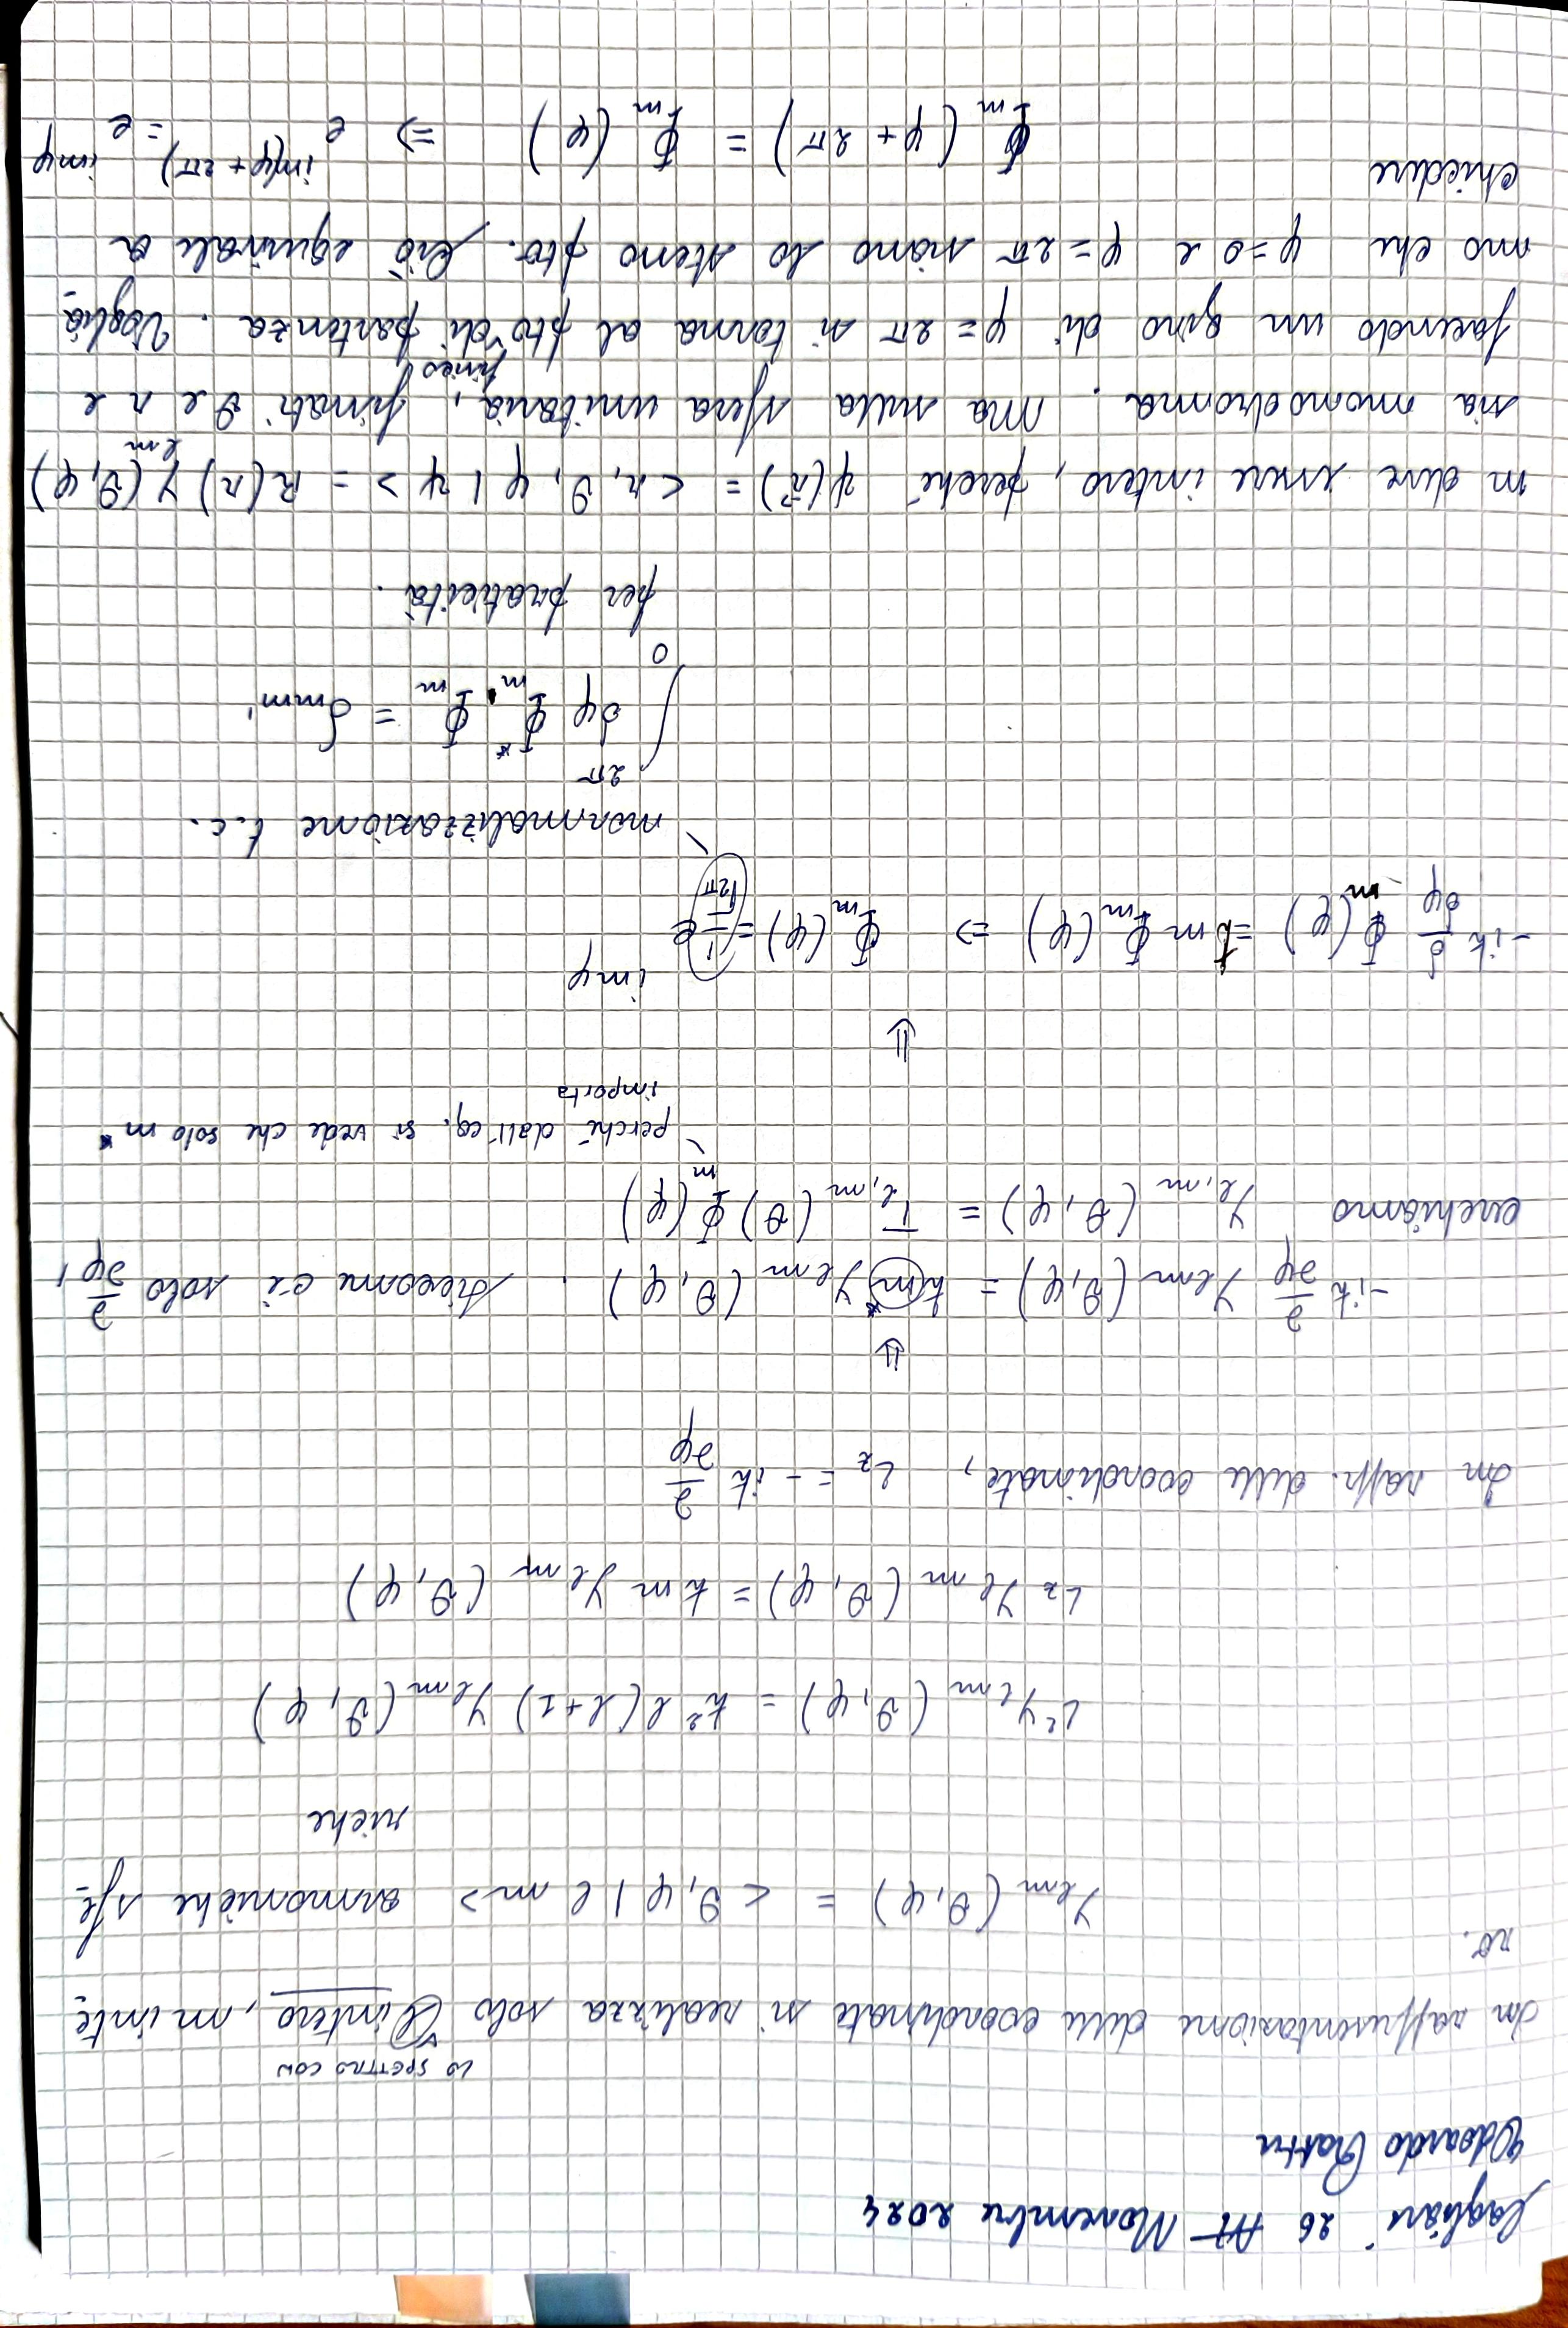 Cagliari 26 Novembre 2024
Edoardo
LO SPETTRO CON
In rappresentazione delle coordinate si realizza solo l intero, m inte-
ro.
Y_lm (θ, φ) = <θ, φ | l m> armoniche sfe-
riche
L² Y_lm (θ, φ) = ħ² l(l+1) Y_lm (θ, φ)
L_z Y_lm (θ, φ) = ħ m Y_lm (θ, φ)
In rapp. delle coordinate, L_z = - iħ ∂/∂φ
⇓
-iħ ∂/∂φ Y_lm (θ, φ) = ħ m* Y_lm (θ, φ). Siccome c'è solo ∂/∂φ,
cerchiamo Y_l,m (θ, φ) = T_l,m (θ) Φ_m (φ)
perché dall'eq. si vede che solo m*
importa
⇓
-iħ d/dφ Φ_m (φ) = ħ m Φ_m (φ) ⇒ Φ_m (φ) = 1/√2π e^imφ
normalizzazione t.c.
∫_0^2π dφ Φ*_m' Φ_m = δ_mm'
per praticità.
m deve essere intero, perché ψ(r⃗) = <r, θ, φ | ψ> = R(r) Y_lm (θ, φ)
sia monodroma. Ma sulla sfera unitaria, fissati θ e r e
fisico
facendo un giro di φ = 2π si torna al pto di partenza. Voglia-
mo che φ = 0 e φ = 2π siano lo stesso pto. Ciò equivale a
chiedere
Φ_m (φ + 2π) = Φ_m (φ) ⇒ e^im(φ + 2π) = e^imφ